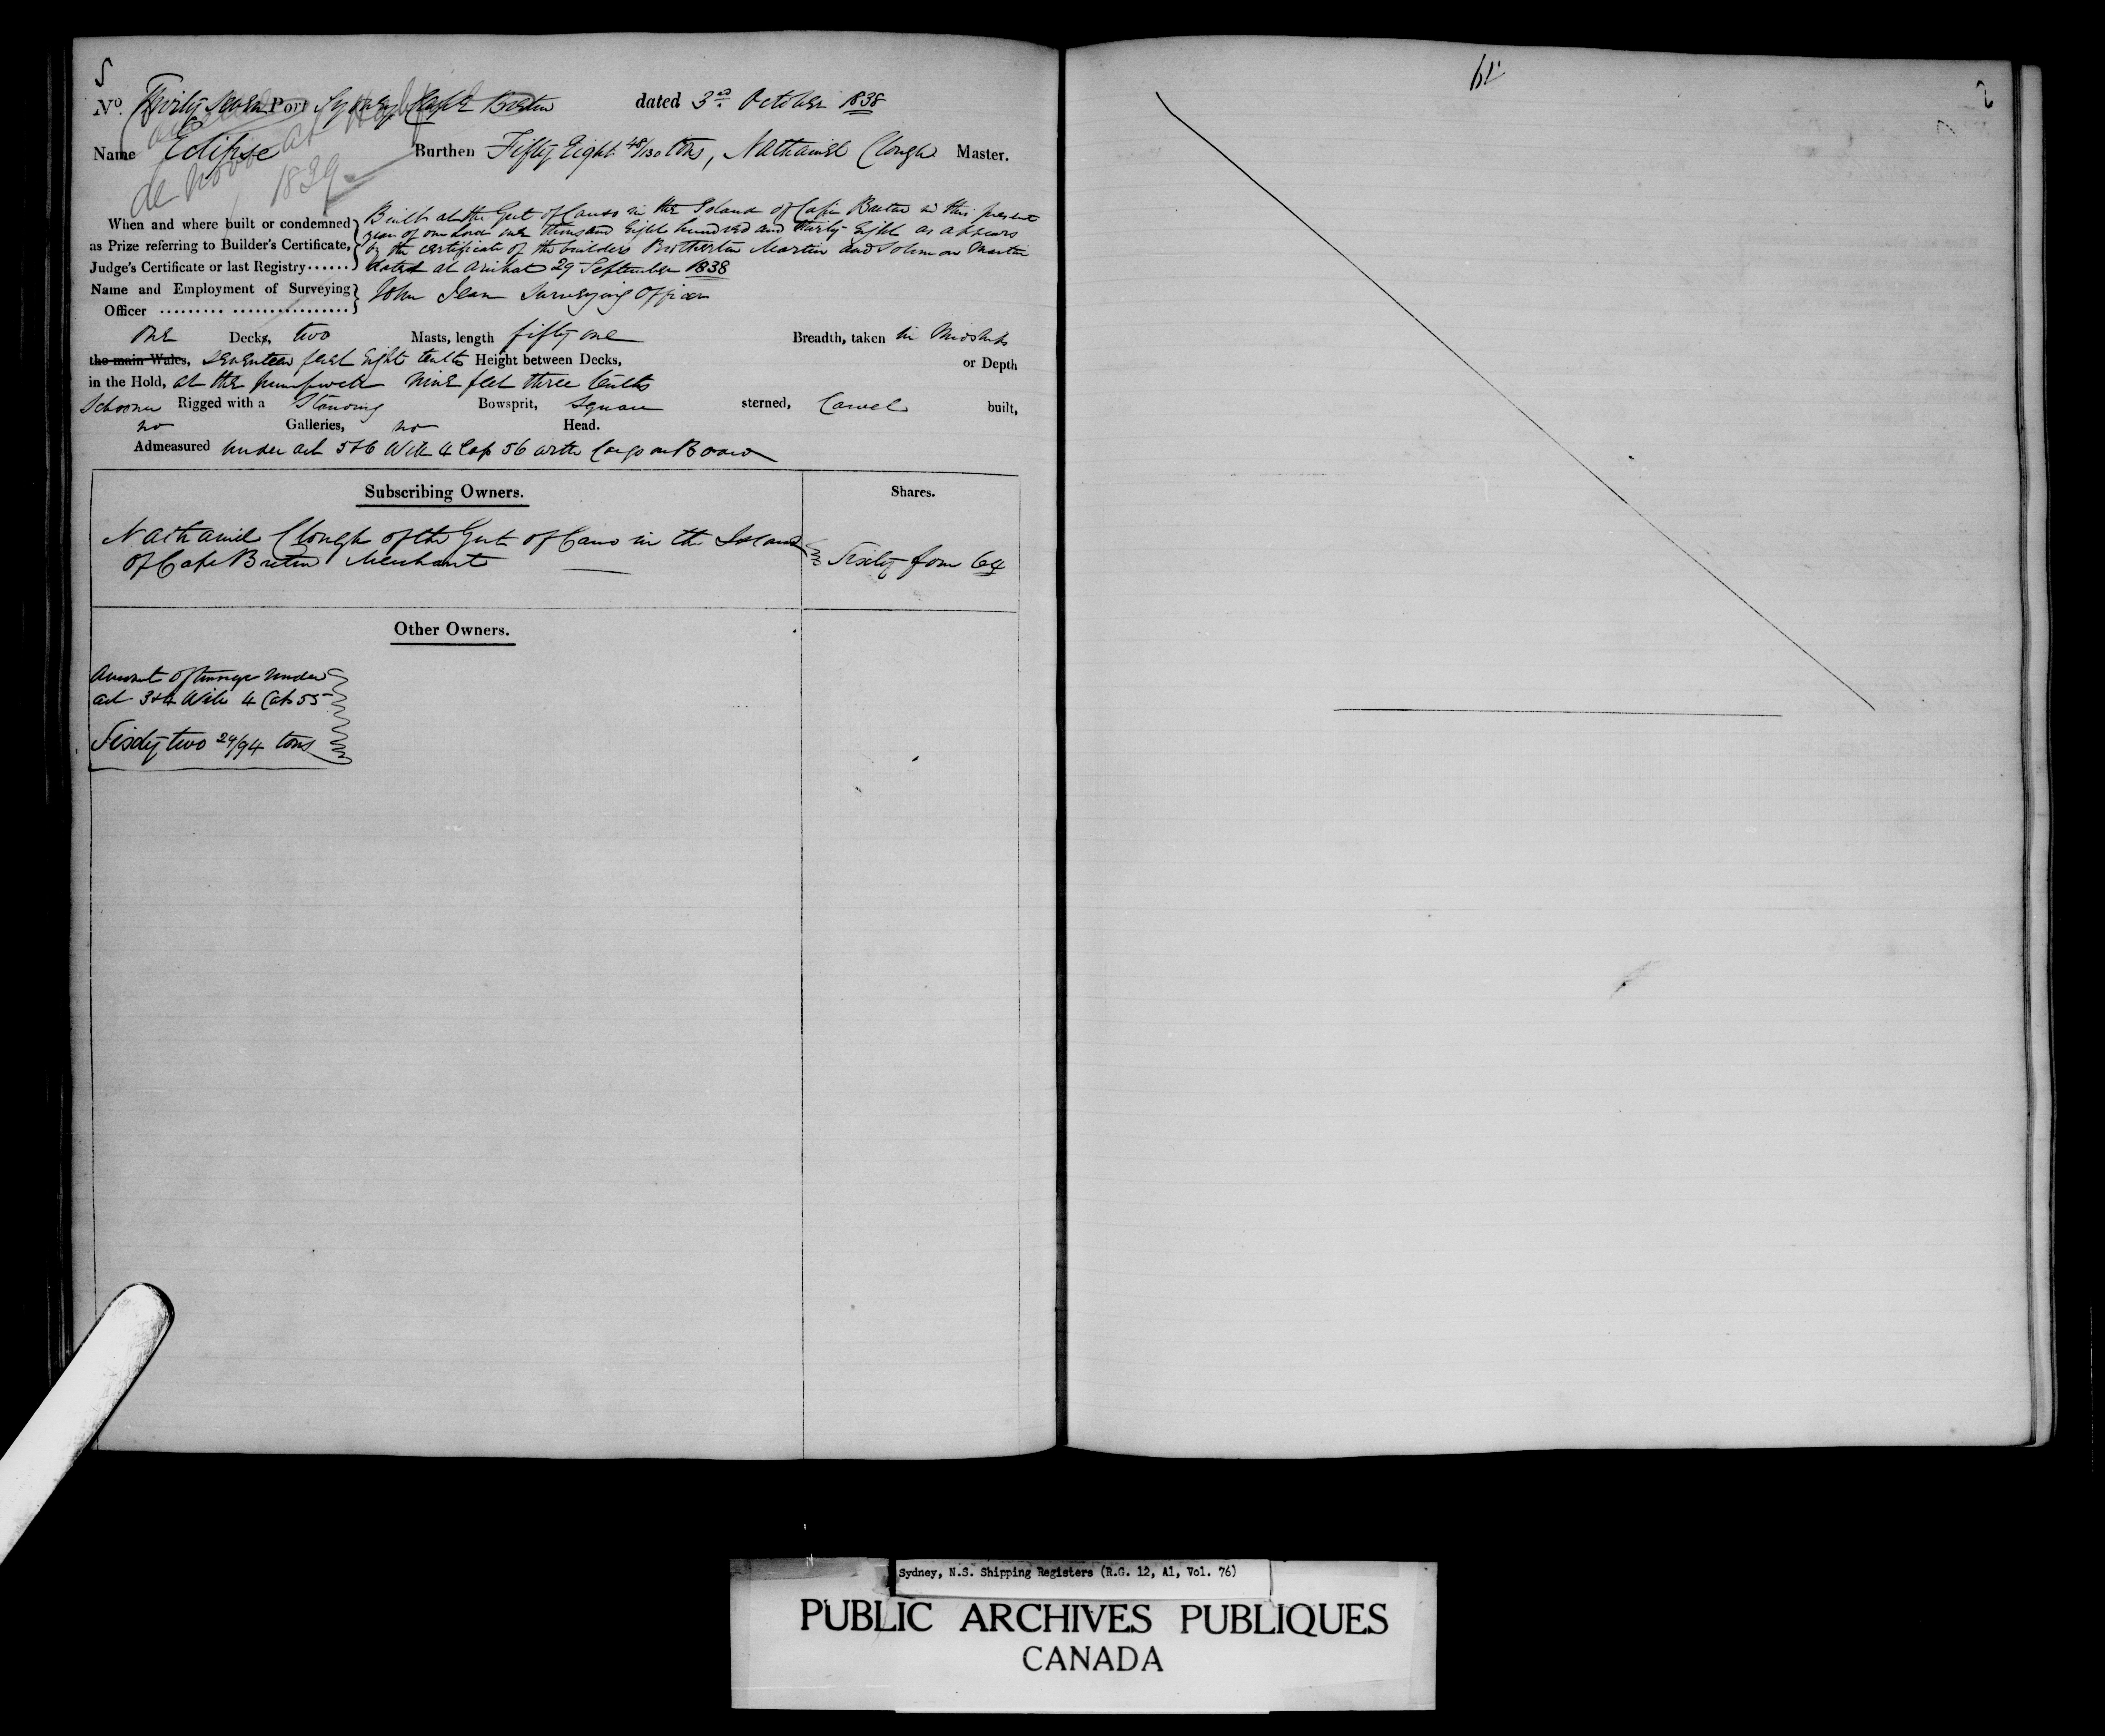 5
No. Thirty Seven Port Sydney Cape Breton dated 3rd October 1838
Name Eclipse Burthen Fifty Eight 48/130 tons, Nathaniel Clough Master.
de novo at
1839
When and where built or condemned as Prize referring to Builder's Certificate, Judge's Certificate or last Registry......
Built at the Gut of Canso in the Island of Cape Breton in this present
year of our Lord one thousand Eight hundred and thirty Eight as appears
by the certificate of the builders Brotherton Martin and Solomon Martin
dated at Arichat 29 September 1838
Name and Employment of Surveying Officer
John Jean Surveying Officer
one Decks, two Masts, length fifty one Breadth, taken in Midships
the main Wales, seventeen feet Eight tenths Height between Decks, or Depth
in the Hold, at the pumpwell nine feet three tenths
Schooner Rigged with a Standing Bowsprit, Square sterned, Carvel built,
no Galleries, no Head.
Admeasured under act 5&6 Will 4 Cap 56 with Cargo on Board
Subscribing Owners. Shares.
Nathaniel Clough of the Gut of Canso in the Island
of Cape Breton Merchant Sixty four 64
Other Owners.
Amount of tonnage under
act 3&4 Will 4 Cap 55
Sixty two 29/94 tons
Sydney, N.S. Shipping Registers (R.G. 12, A1, Vol. 76)
PUBLIC ARCHIVES PUBLIQUES
CANADA